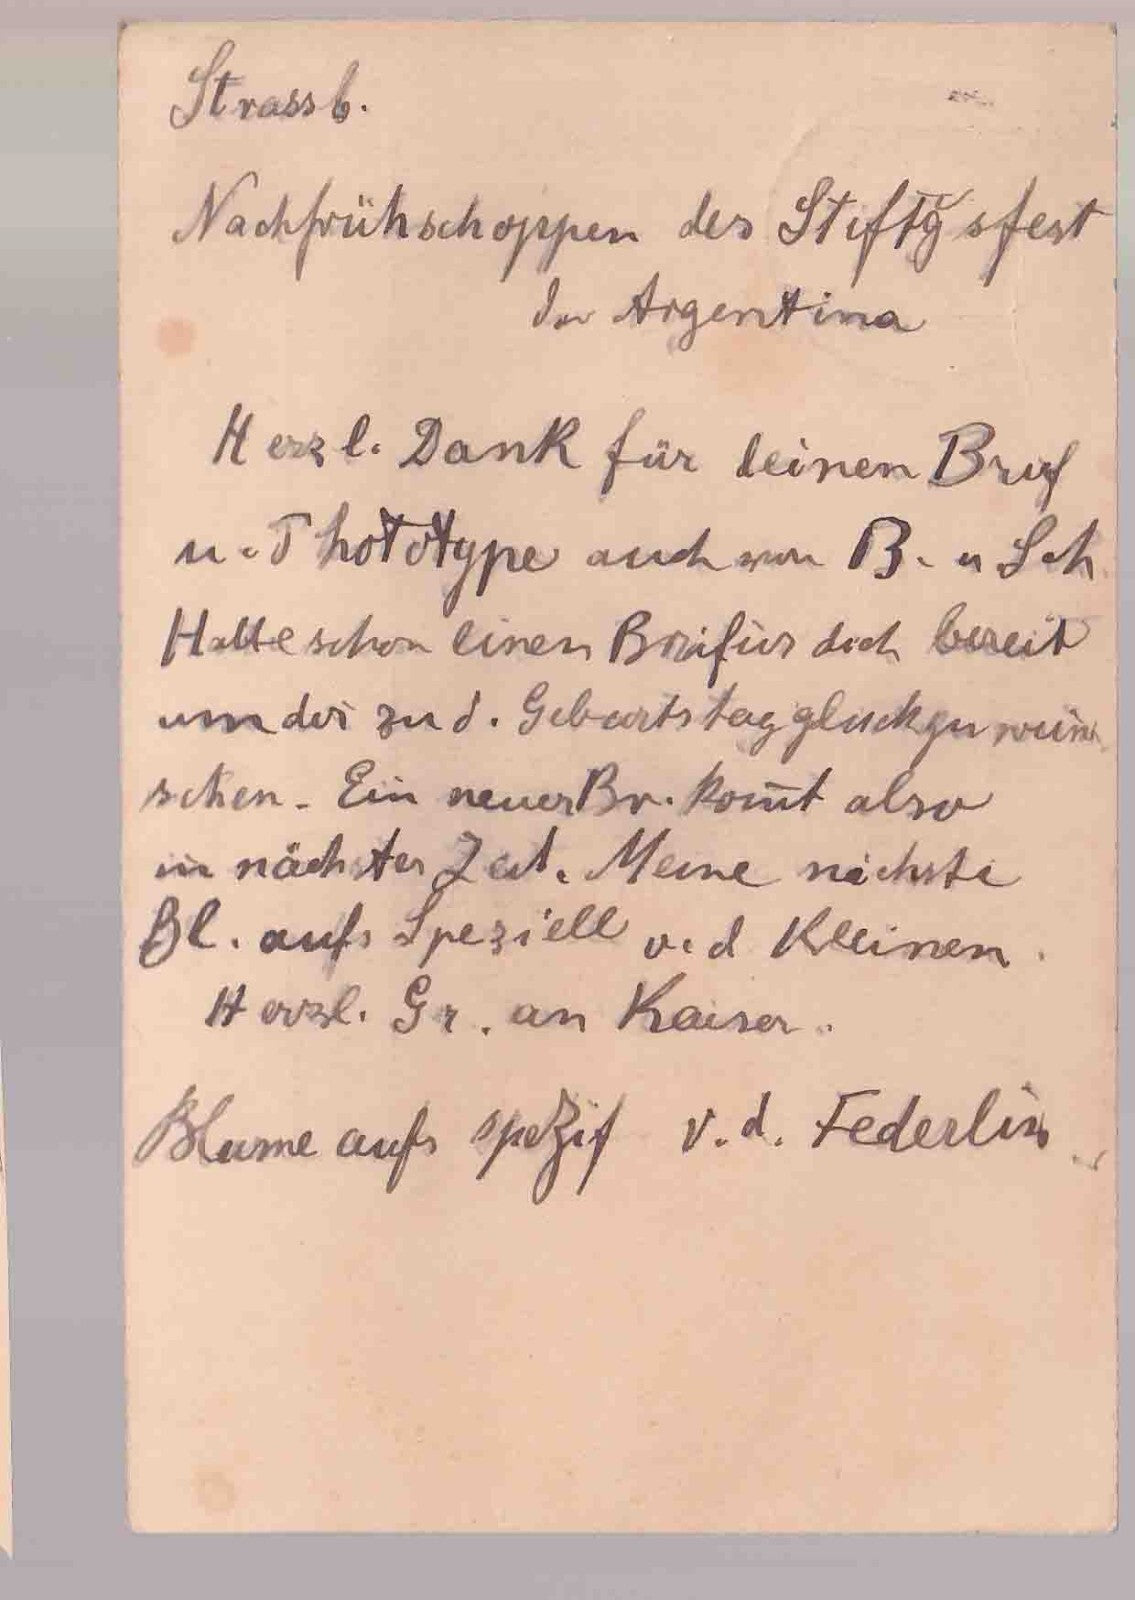 Strassb.
Nachfrühschoppen des Stiftgsfest
der Argentina
Herzl. Dank für deinen Brief
u. Phototype auch von B. u Sch
Hatte schon einen Brif für dich bereit
um dir zu d. Geburtstag gluckzu wün
schen. Ein neuer Br. kom̅t also
in nächster Zeit. Meine nächste
Bl. aufs Speziell v. d Kleinen.
Herzl. Gr. an Kaiser.
Blume aufs spezif v. d. Federlin